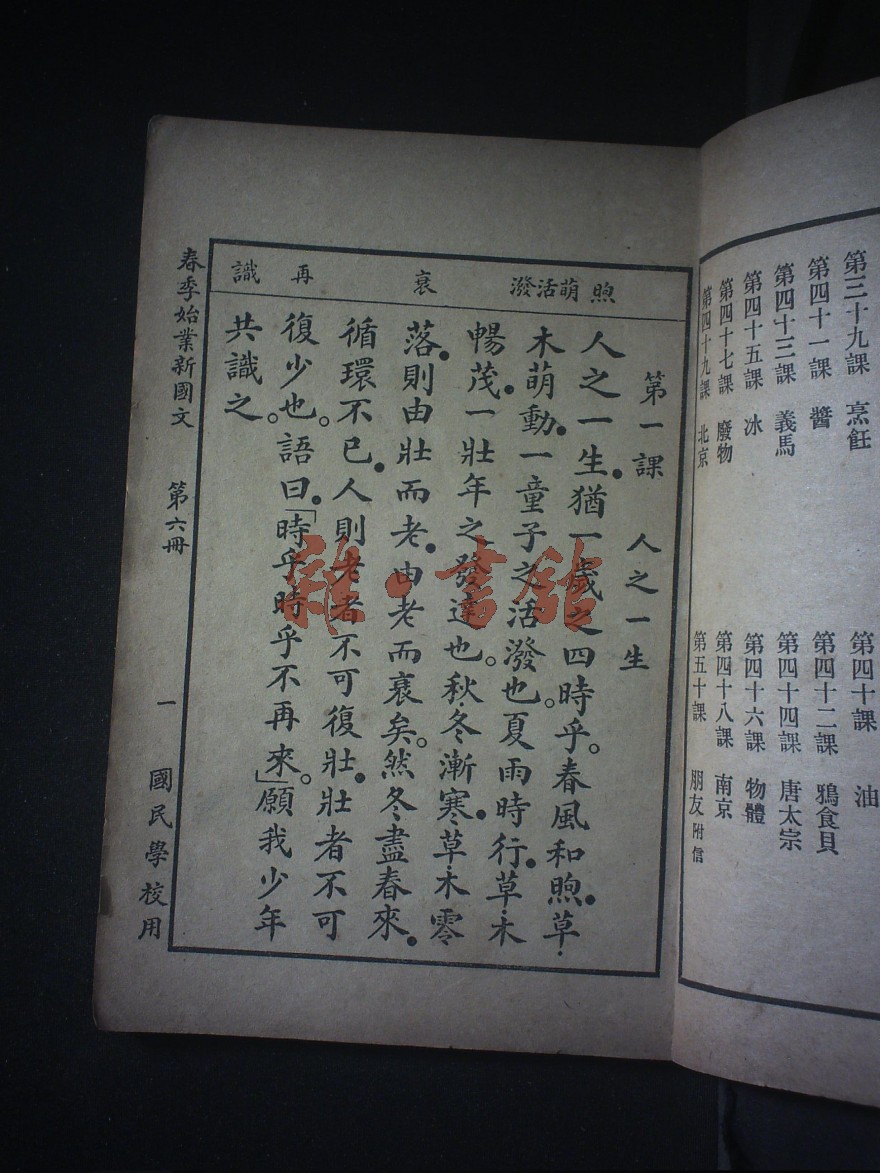 第三十九課　烹飪
第四十課　油
第四十一課　醬
第四十二課　鴉食貝
第四十三課　義馬
第四十四課　唐太宗
第四十五課　冰
第四十六課　物體
第四十七課　廢物
第四十八課　南京
第四十九課　北京
第五十課　朋友附信
煦　萌活潑　衰　再　識
第一課　人之一生
人之一生。猶一歲之四時乎。春風和煦。草·
木萌動。一童子之活潑也。夏雨時行。草·木
暢茂。一壯年之發達也。秋·冬漸寒。草·木零
落。則由壯而老。由老而衰矣。然冬盡春來。
循環不已。人則老者不可復壯。壯者不可
復少也。語曰。「時乎時乎不再來。」願我少年
共識之。
春季始業新國文　第六冊　一　國民學校用
雜·書館